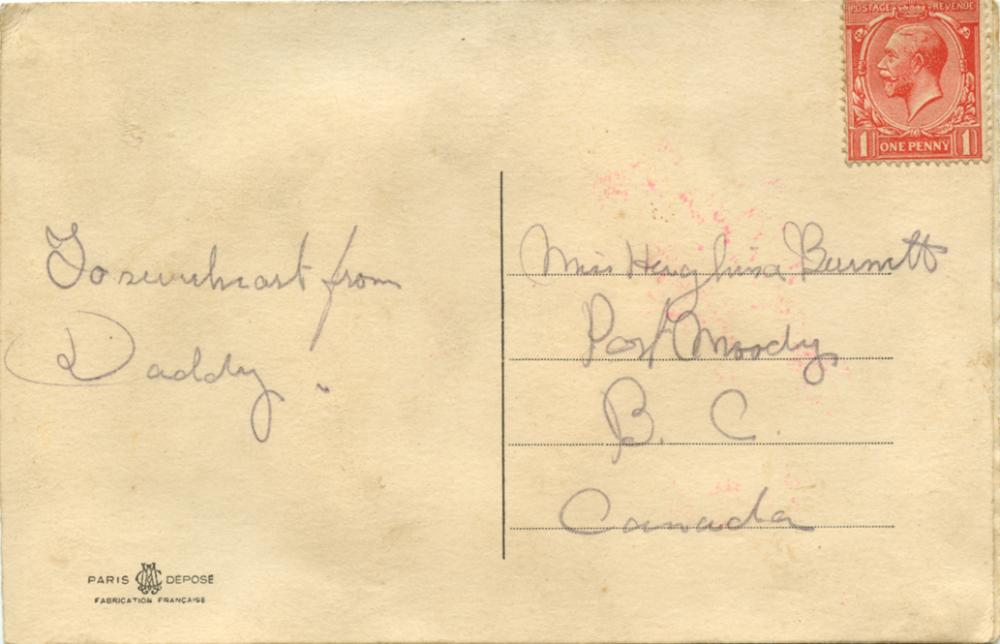 POSTAGE REVENUE
1 ONE PENNY 1
To sweeheart from
Daddy!
Miss Hughina Burnett
Port Moody
B. C.
Canada
PARIS DÉPOSÉ
FABRICATION FRANÇAISE